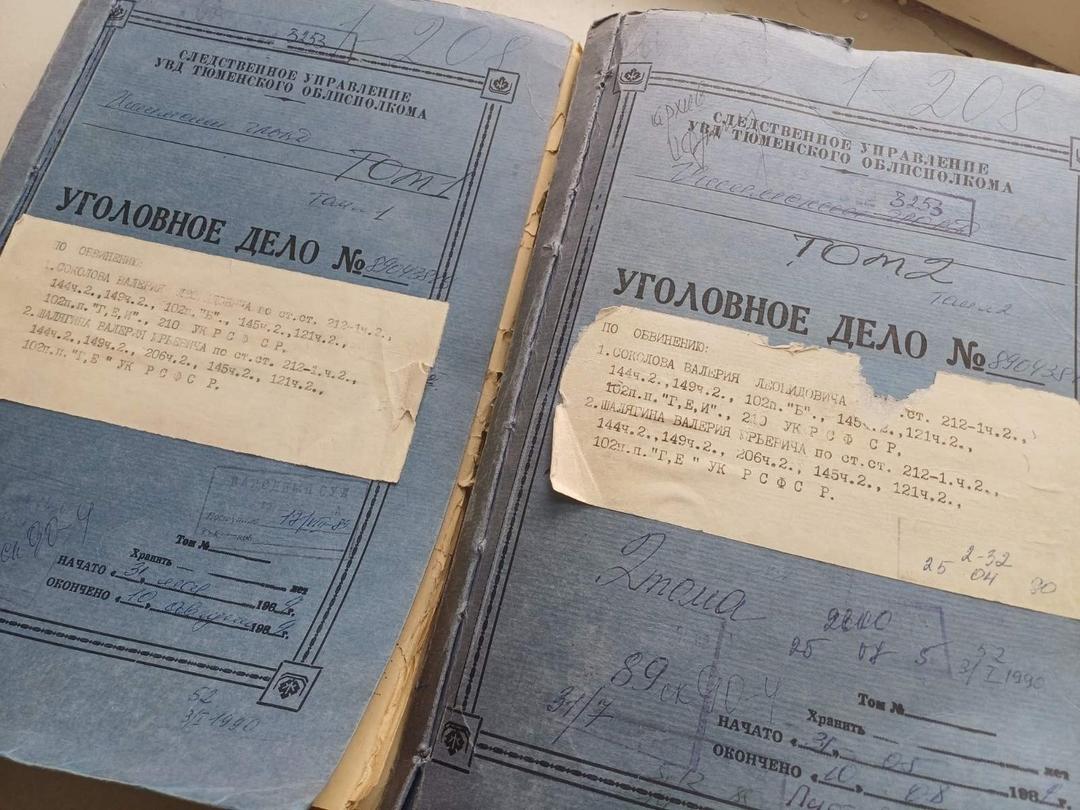 1-208
3253
СЛЕДСТВЕННОЕ УПРАВЛЕНИЕ
УВД ТЮМЕНСКОГО ОБЛИСПОЛКОМА
ТОМ 1
УГОЛОВНОЕ ДЕЛО №
ПО ОБВИНЕНИЮ:
1.СОКОЛОВА ВАЛЕРИЯ ЛЕОНИДОВИЧА по ст.ст. 212-1ч.2.,
144ч.2.,149ч.2., 102п."Б"., 145ч.2.,121ч.2.,
102п.п."Г,Е,И"., 210 УК Р С Ф С Р,
2.ШАЛЯГИНА ВАЛЕРИЯ ЮРЬЕВИЧА по ст.ст. 212-1.ч.2.,
144ч.2.,149ч.2., 206ч.2., 145ч.2., 121ч.2.,
102п.п."Г,Е " УК Р С Ф С Р.
НАРОДНЫЙ СУД
Том №
Хранить лет
НАЧАТО « 31 » мая 1989 г.
ОКОНЧЕНО « 10 » августа 1989 г.
52
3/I-1990
1-208
архив
СЛЕДСТВЕННОЕ УПРАВЛЕНИЕ
УВД ТЮМЕНСКОГО ОБЛИСПОЛКОМА
3253
ТОМ 2
УГОЛОВНОЕ ДЕЛО №
ПО ОБВИНЕНИЮ:
1.СОКОЛОВА ВАЛЕРИЯ ЛЕОНИДОВИЧА ст. 212-1ч.2.,
144ч.2.,149ч.2., 102п."Б"., 145ч.2.,121ч.2.,
102п.п."Г,Е,И"., 210 УК Р С Ф С Р,
2.ШАЛЯГИНА ВАЛЕРИЯ ЮРЬЕВИЧА по ст.ст. 212-1.ч.2.,
144ч.2.,149ч.2., 206ч.2., 145ч.2., 121ч.2.,
102п.п."Г,Е " УК Р С Ф С Р.
2-32
25 04 90
2 тома
52
3/I 1990
89
31/7
Том №
Хранить лет
НАЧАТО « 31 » 05
ОКОНЧЕНО « 10 » 08 1989 г.